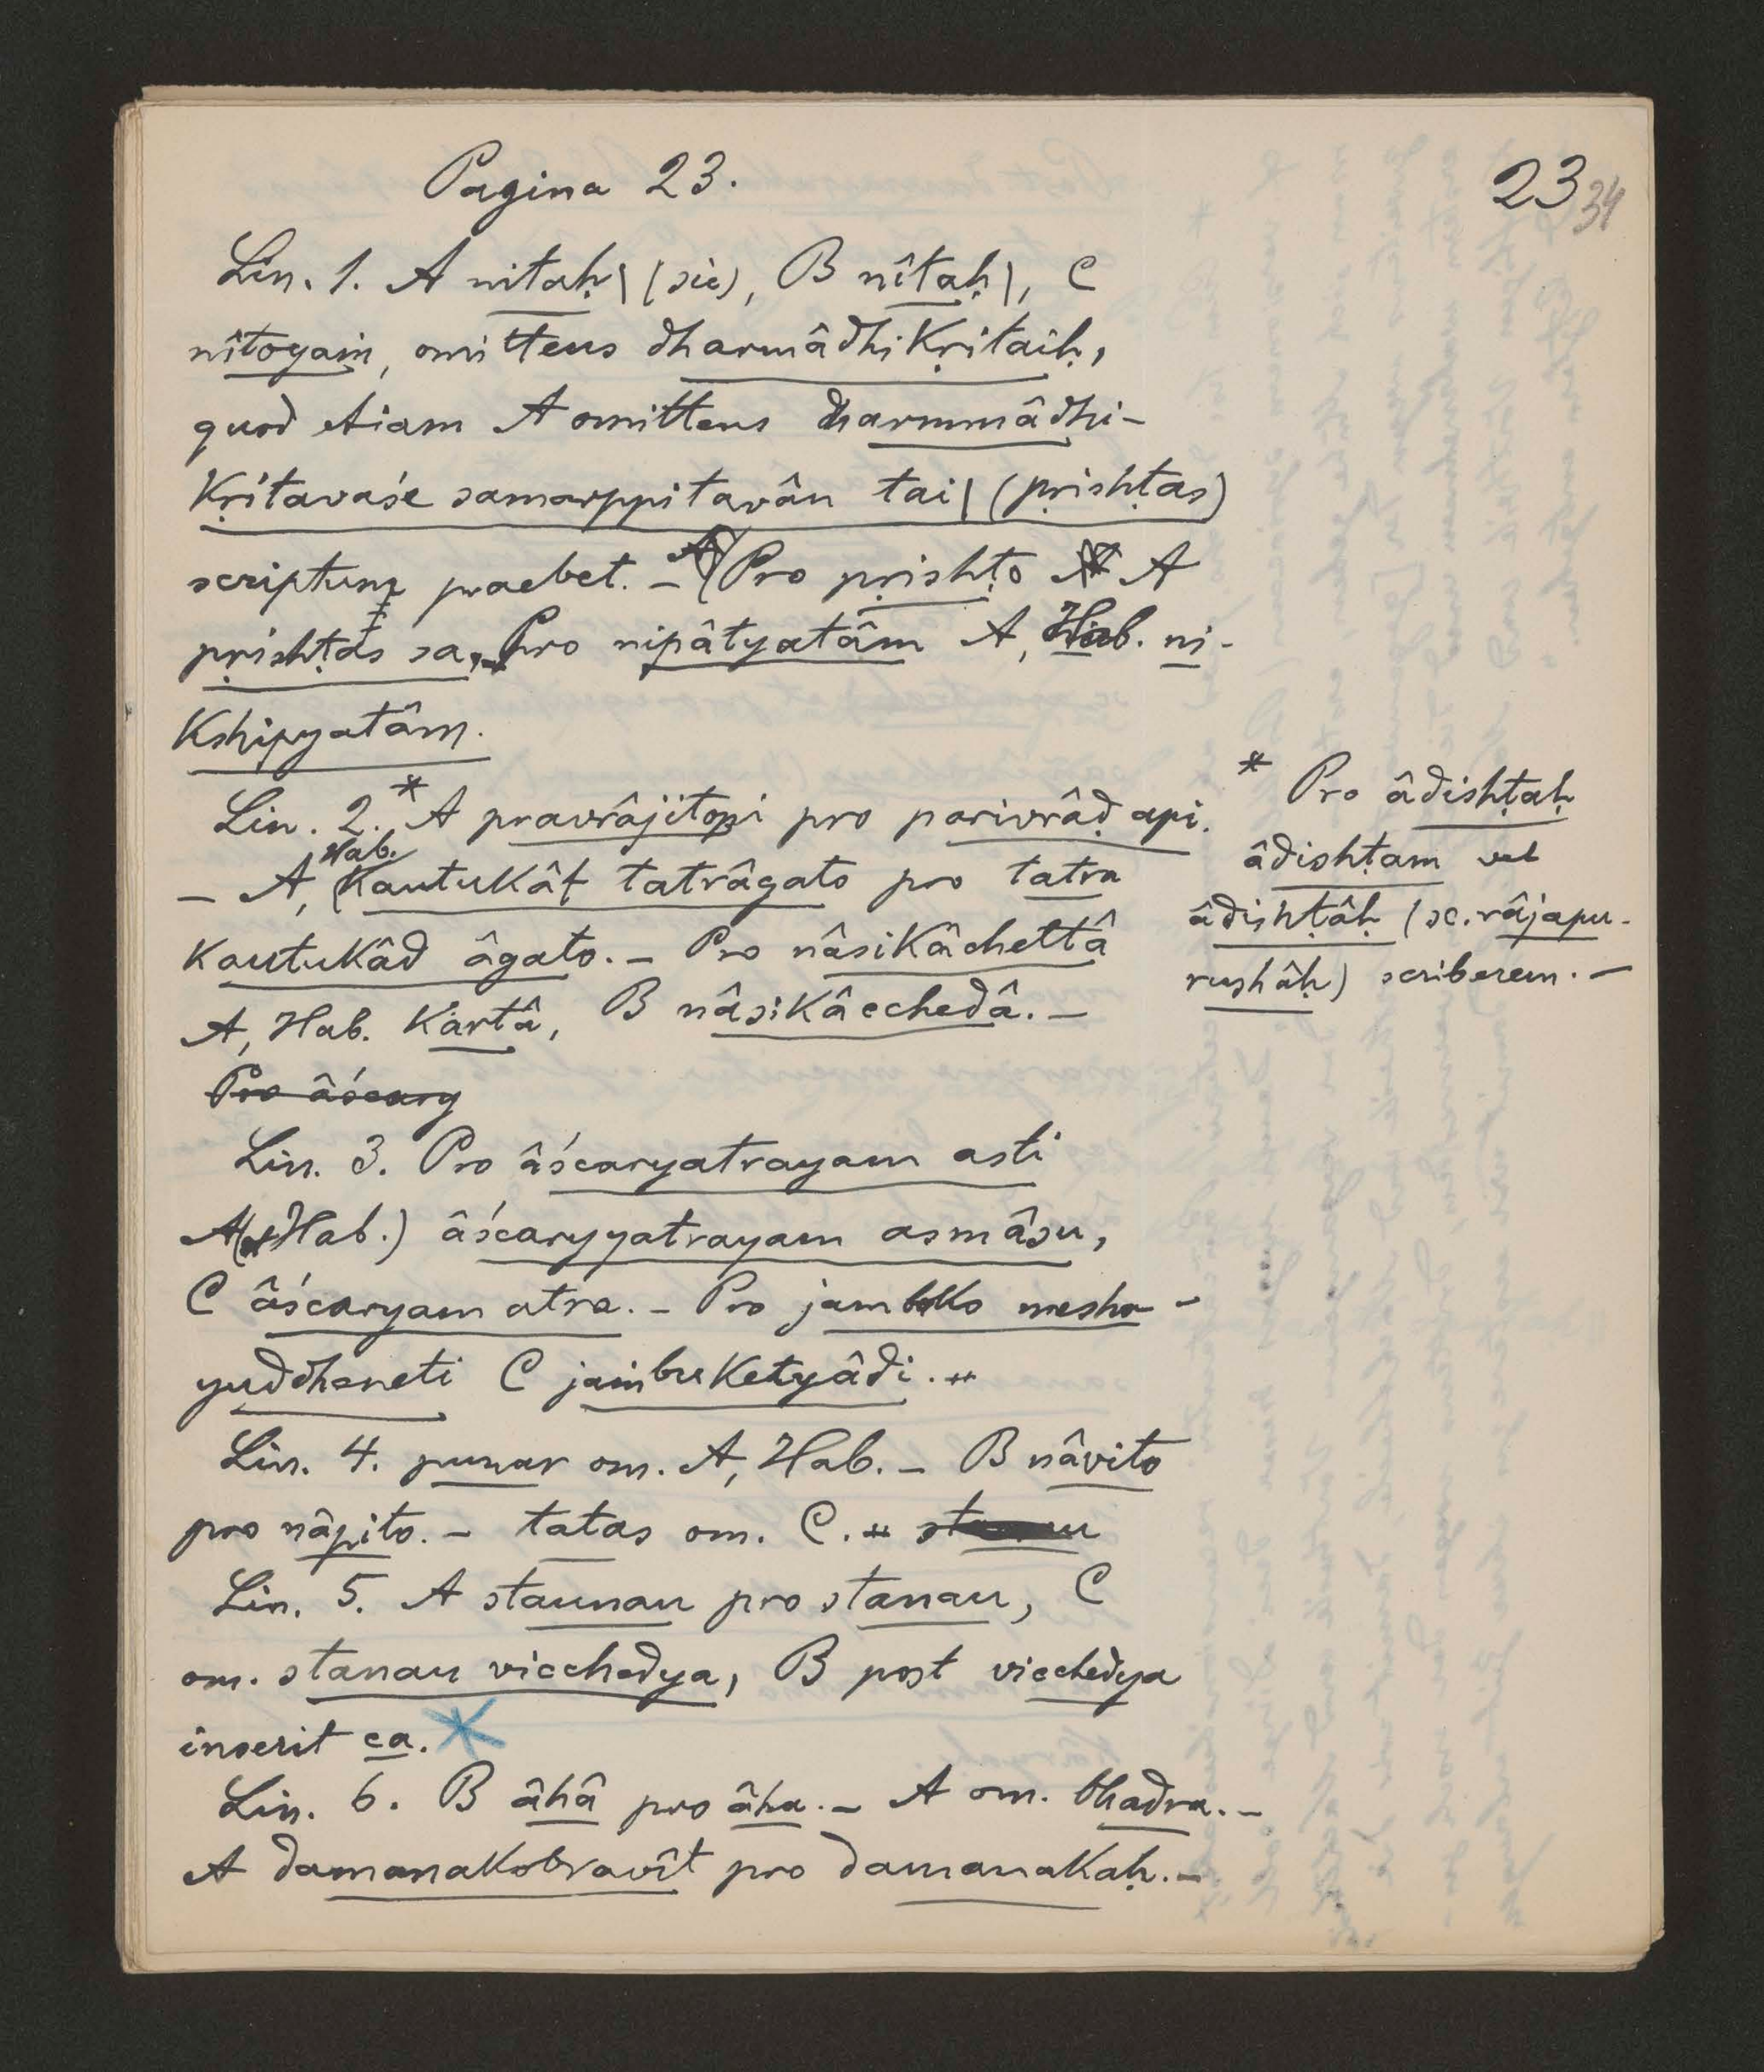 Pagina 23.
23 34
Lin. 1. A nitaḥ| (sic), B nîtaḥ|, C
nîtoyaṁ, omittens dharmâdhikṛitaiḥ,
quod etiam A omittens dharmmâdhi-
kṛitavaśe samarppitavân tai| (pṛishṭas)
scriptum praebet. – Pro pṛishṭo A
pṛishṭas sa, Pro nipâtyatâm A, Hab. ni-
kshipyatâm.
Lin. 2.* A pravrâjitopi pro parivrâḍ api.
– A, Hab. kautukât tatrâgato pro tatra
kautukâd âgato. – Pro nâsikâchettâ
A, Hab. kartâ, B nâsikâcchedâ. –
Pro âścary
Lin. 3. Pro âścaryatrayam asti
A (Hab.) âścaryyatrayam asmâsu,
C âścaryam atra. – Pro jambuko mesha-
yuddheneti C jaṁbuketyâdi. –
Lin. 4. punar om. A, Hab. – B nâvito
pro nâpito. – tatas om. C. –
Lin. 5. A staunau pro stanau, C
om. stanau vicchedya, B post vicchedya
inserit ca. *
Lin. 6. B âhâ pro âha. – A om. bhadra. –
A damanakobravît pro damanakaḥ. –
* Pro âdishṭaḥ
âdishṭam vel
âdishṭâḥ (sc. râjapu-
rushâḥ) scriberem. –